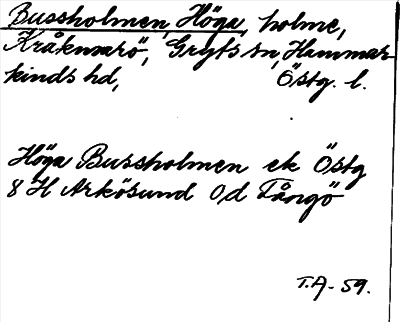 Bussholmen, Höga, holme,
Kråkmarö, Gryts sn, Hammar-
kinds hd, Östg. l.
Höga Bussholmen ek Östg
8 H Arkösund Od Fångö
T.A. - 59.